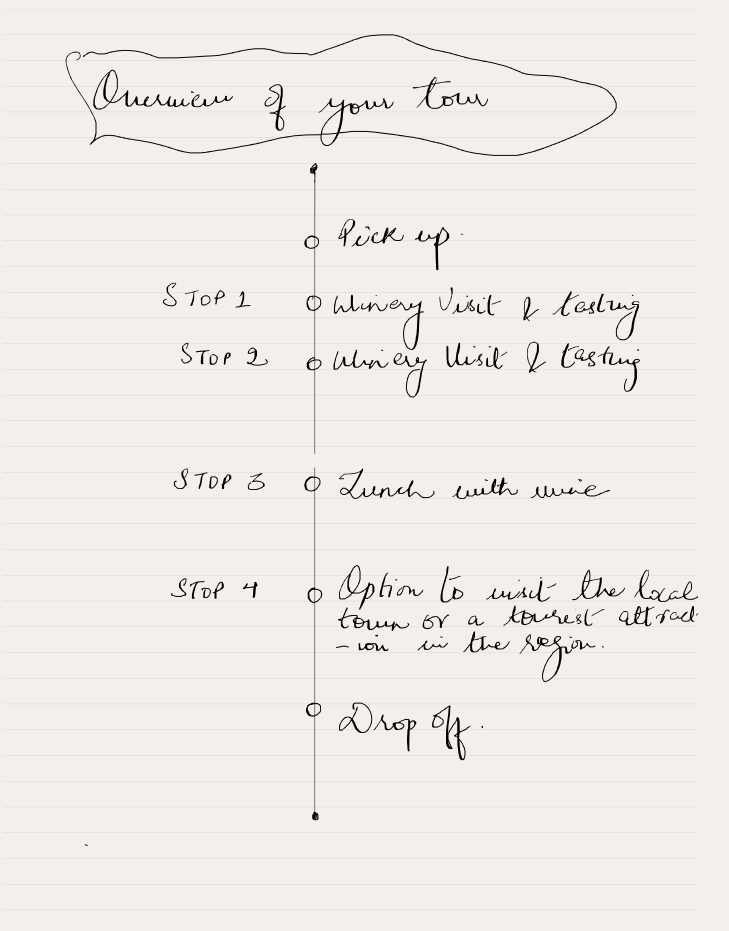 Overview of your tour
Pick up.
STOP 1 Winery Visit & tasting
STOP 2 Winery Visit & tasting
STOP 3 Lunch with wine
STOP 4 Option to visit the local
town or a tourest attract
-ion in the region.
Drop off.